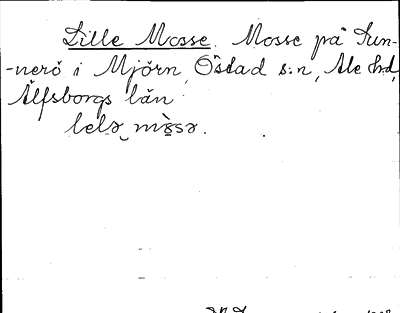 Lille Mosse. Mosse på Sun-
-nerö i Mjörn, Östad s:n, Ale hd,
Älfsborgs län.
lelə mòsə.